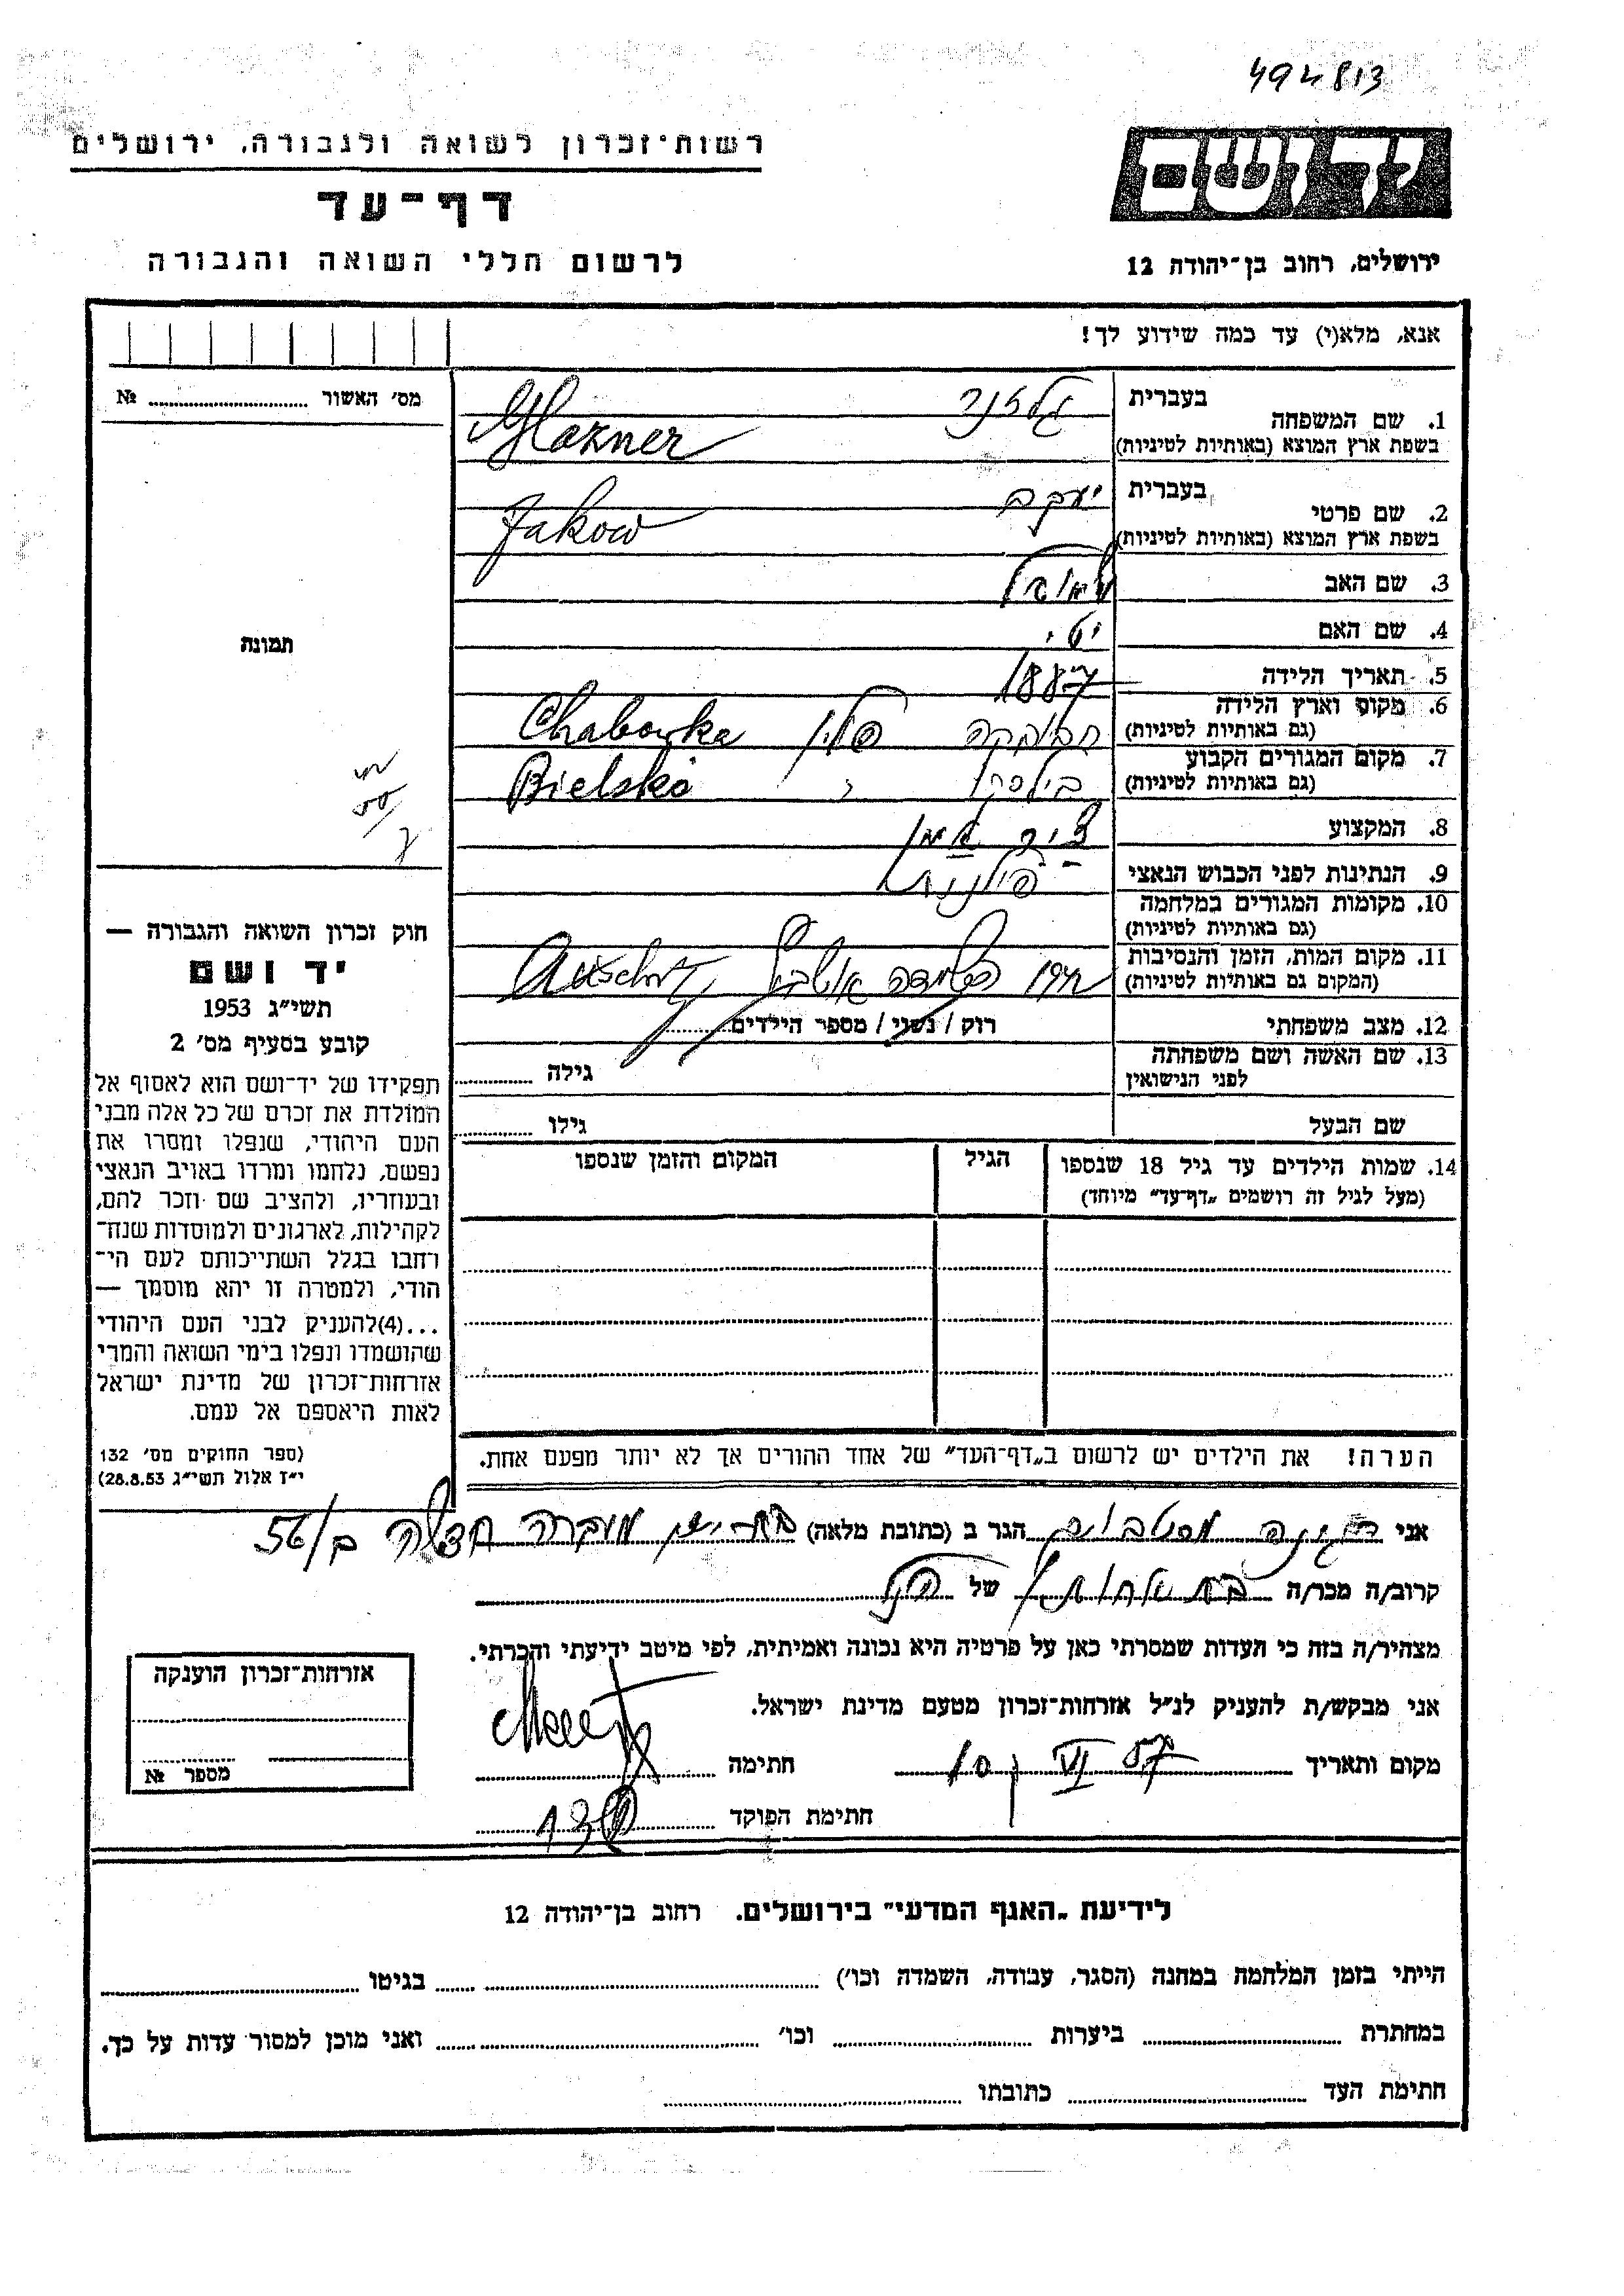 494813
יד ושם
רשות־זכרון לשואה ולגבורה, ירושלים
דף־עד
לרשום חללי השואה והגבורה
ירושלים, רחוב בן־יהודה 12
אנא, מלא(י) עד כמה שידוע לך!
מס׳ האשור № 
1. שם המשפחה
בעברית גלזנר
בשפת ארץ המוצא (באותיות לטיניות) Glazner
2. שם פרטי
בעברית יעקב
בשפת ארץ המוצא (באותיות לטיניות) Jakow
3. שם האב שמואל
4. שם האם יטי
5. תאריך הלידה 1887
6. מקום וארץ הלידה
(גם באותיות לטיניות) חבובקה פולין Chabowka
7. מקום המגורים הקבוע
(גם באותיות לטיניות) בילסקו Bielsko
8. המקצוע
9. הנתינות לפני הכבוש הנאצי פולנית
10. מקומות המגורים במלחמה
(גם באותיות לטיניות)
11. מקום המות, הזמן והנסיבות
(המקום גם באותיות לטיניות) השמדה
12. מצב משפחתי רוק / נשוי / מספר הילדים
13. שם האשה ושם משפחתה
לפני הנישואין גילה
שם הבעל גילו
14. שמות הילדים עד גיל 18 שנספו
(מעל לגיל זה רושמים „דף־עד״ מיוחד)
הגיל
המקום והזמן שנספו
הערה! את הילדים יש לרשום ב„דף־העד״ של אחד ההורים אך לא יותר מפעם אחת.
תמונה
חוק זכרון השואה והגבורה —
יד ושם
תשי״ג 1953
קובע בסעיף מס׳ 2
תפקידו של יד־ושם הוא לאסוף אל
המולדת את זכרם של כל אלה מבני
העם היהודי, שנפלו ומסרו את
נפשם, נלחמו ומרדו באויב הנאצי
ובעוזריו, ולהציב שם וזכר להם,
לקהילות, לארגונים ולמוסדות שנח־
רחבו בגלל השתייכותם לעם הי־
הודי, ולמטרה זו יהא מוסמך —
...(4)להעניק לבני העם היהודי
שהושמדו ונפלו בימי השואה והמרי
אזרחות־זכרון של מדינת ישראל
לאות היאספם אל עמם.
(ספר החוקים מס׳ 132
י״ז אלול תשי״ג 28.8.53)
אני הגר ב (כתובת מלאה) מעברה חדשה ב/56
קרוב/ה מכר/ה בת אחותו של הנ״ל
מצהיר/ה בזה כי העדות שמסרתי כאן על פרטיה היא נכונה ואמיתית, לפי מיטב ידיעתי והכרתי.
אני מבקש/ת להעניק לנ״ל אזרחות־זכרון מטעם מדינת ישראל.
מקום ותאריך 10 VI 57 חתימה
חתימת הפוקד 130
אזרחות־זכרון הוענקה
מספר №
לידיעת „האגף המדעי״ בירושלים. רחוב בן־יהודה 12
הייתי בזמן המלחמה במחנה (הסגר, עבודה, השמדה וכו׳) בגיטו
במחתרת ביערות וכו׳ ואני מוכן למסור עדות על כך.
חתימת העד כתובתו